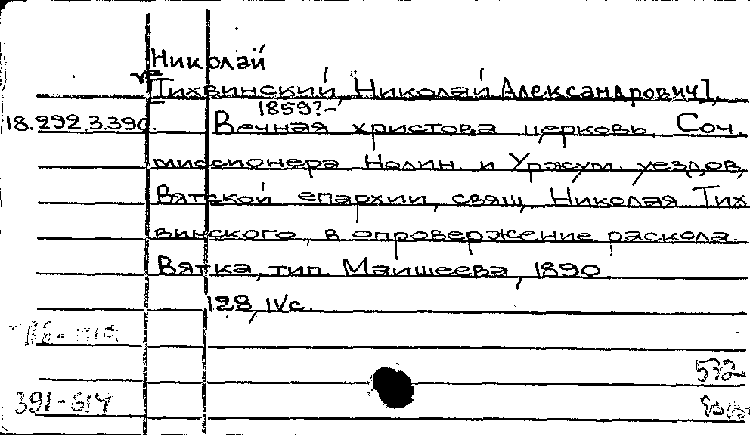 Николай
Тихвинский, Николай Александрович].
1859?-
18.292.3.390 Вечная христова церковь. Соч.
миссионера Нолин. и Уржум. уездов,
Вятской епархии, свящ. Николая Тих
винского, в опровержение раскола.
Вятка, тип. Маишеева, 1890.
128, IV с.
391-614